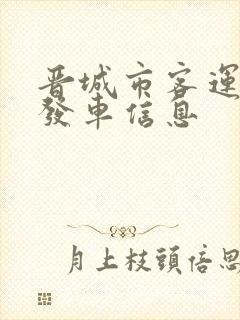 晋城市客運
發車信息
月上枝頭倍思